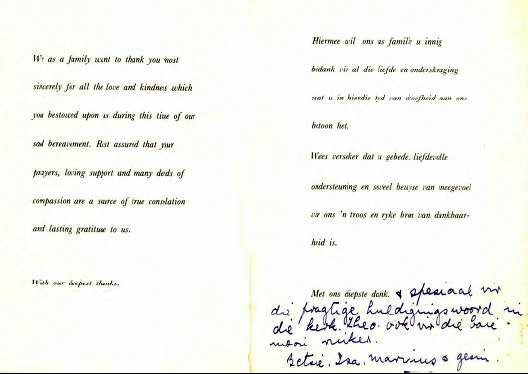 We as a family want to thank you most
sincerely for all the love and kindness which
you bestowed upon us during this time of our
sad bereavement. Rest assured that your
prayers, loving support and many deeds of
compassion are a source of true consolation
and lasting gratitude to us.
With our deepest thanks.
Hiermee wil ons as familie u innig
bedank vir al die liefde en onderskraging
wat u in hierdie tyd van droefheid aan ons
betoon het.
Wees verseker dat u gebede, liefdevolle
ondersteuning en soveel bewyse van meegevoel
vir ons 'n troos en ryke bron van dankbaar-
heid is.
Met ons diepste dank. & spesiaal vir
die pragtige huldigingswoord in
die kerk. Theo. ook vir die baie
mooi ruiker.
Betsie, Isa, Marinus & gesin.